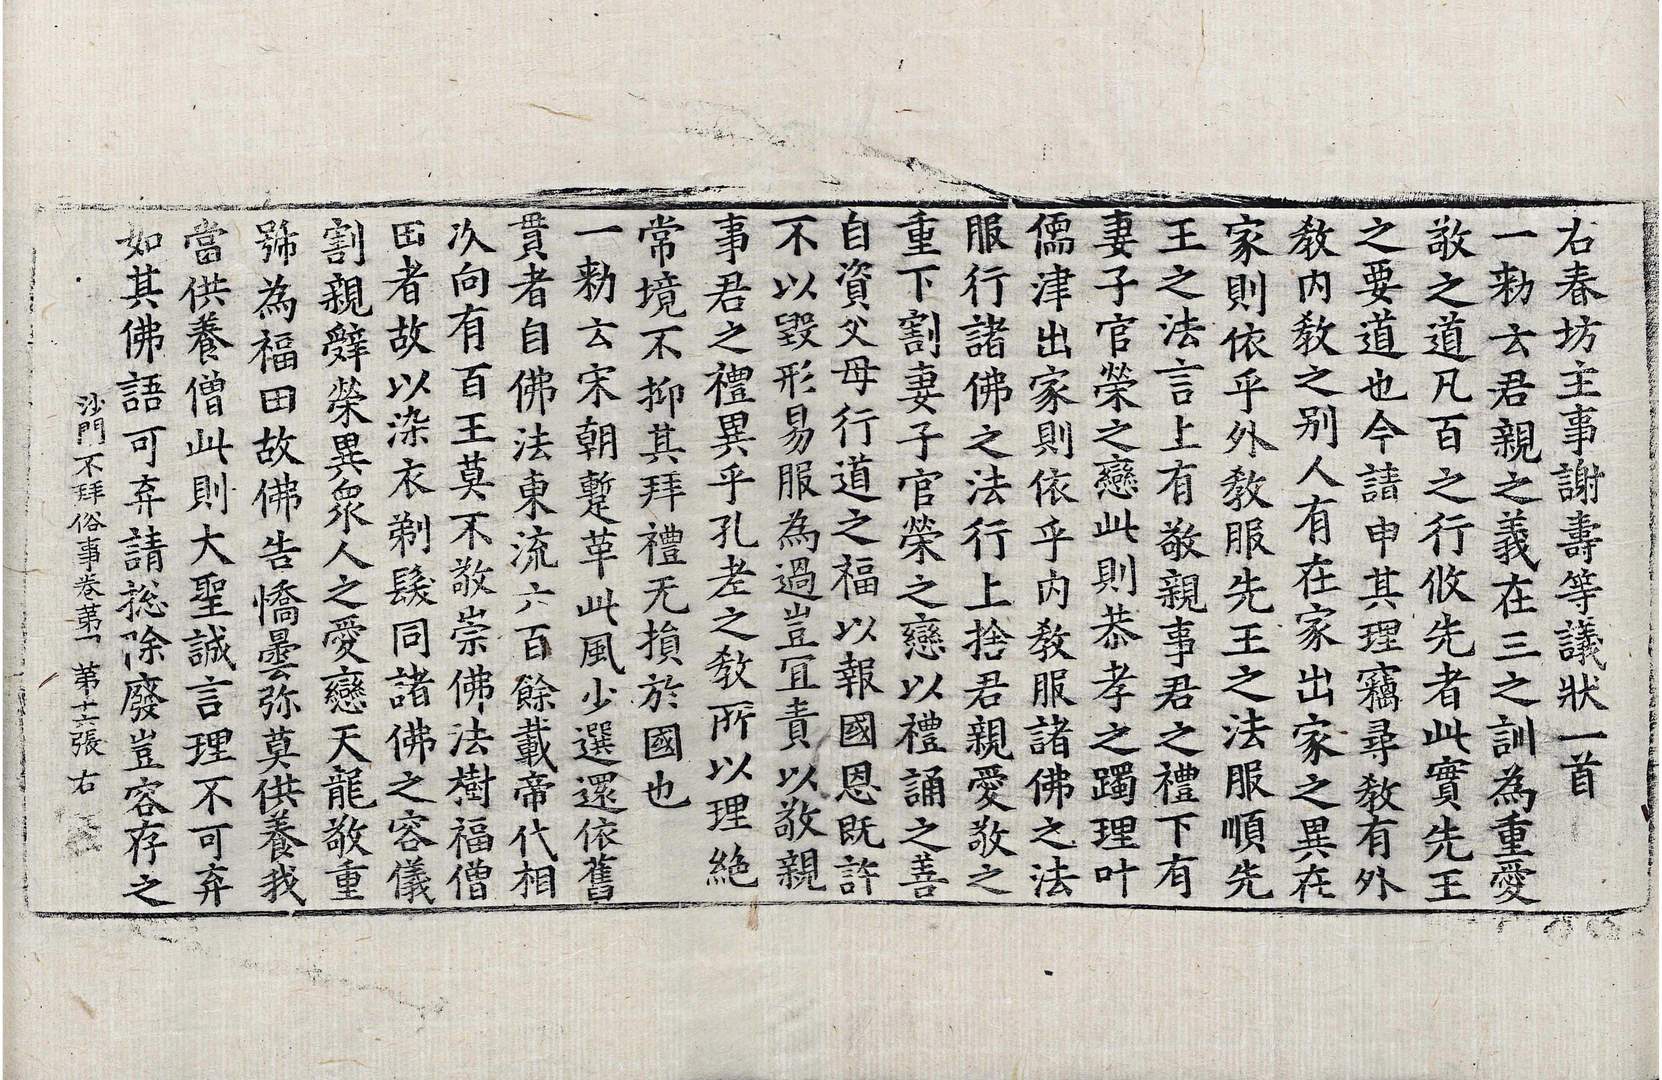 右春坊主事謝壽等議狀一首
一勑云君親之義在三之訓為重愛
敬之道凡百之行攸先者此實先王
之要道也今請申其理竊尋教有外
教內教之別人有在家出家之異在
家則依乎外教服先王之法服順先
王之法言上有敬親事君之禮下有
妻子官榮之戀此則恭孝之躅理叶
儒津出家則依乎內教服諸佛之法
服行諸佛之法行上捨君親愛敬之
重下割妻子官榮之戀以禮誦之善
自資父母行道之福以報國恩既許
不以毀形易服為過豈宜責以敬親
事君之禮異乎孔老之教所以理絕
常境不抑其拜禮无損於國也
一勑云宋朝蹔革此風少選還依舊
貫者自佛法東流六百餘載帝代相
次向有百王莫不敬崇佛法樹福僧
田者故以染衣剃髮同諸佛之容儀
割親辭榮異衆人之愛戀天龍敬重
號為福田故佛告憍曇弥莫供養我
當供養僧此則大聖誠言理不可弃
如其佛語可弃請捴除廢豈容存之
沙門不拜俗事卷第一 第十六張 右